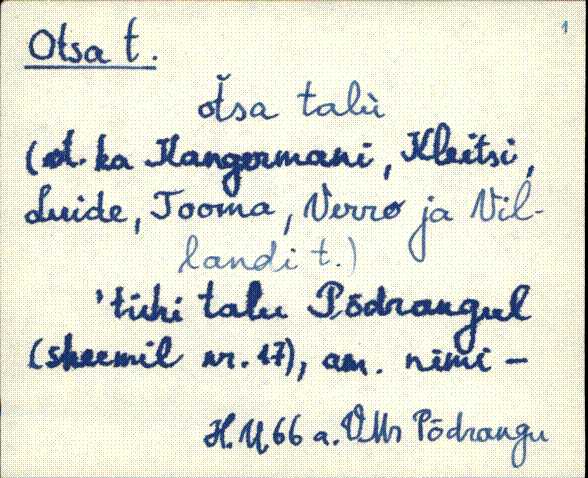 1
Otsa t.
òťsa talù
(vt. ka Kangermani, Kleitsi,
Luide, Tooma, Verro ja Vil-
landi t.)
'tühi talu Põdrangul
(skeemil nr. 17), am. nimi –
H. U 66 a. VMr Põdrangu